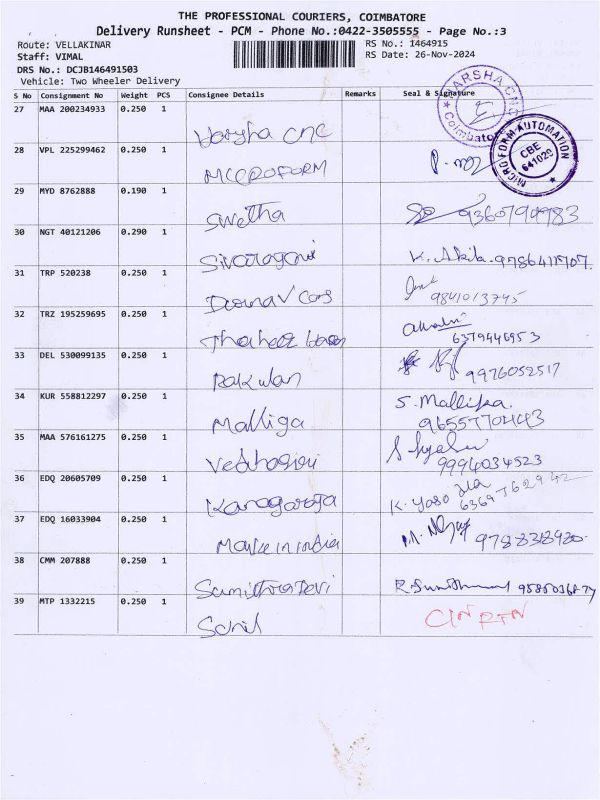 THE PROFESSIONAL COURIERS, COIMBATORE
Delivery Runsheet - PCM - Phone No.:0422-3505555 - Page No.:3
Route: VELLAKINAR
RS No.: 1464915
Staff: VIMAL
RS Date: 26-Nov-2024
DRS No.: DCJB146491503
Vehicle: Two Wheeler Delivery
S No Consignment No Weight PCS Consignee Details Remarks Seal & Signature
27 MAA 200234933 0.250 1 Varsha CNC
VARSHA CNC Coimbatore
28 VPL 225299462 0.250 1 MICROFORM
MICROFORM AUTOMATION CBE 641029
29 MYD 8762888 0.190 1 Swetha
30 NGT 40121206 0.290 1 K. Akila
31 TRP 520238 0.250 1 9841013745
32 TRZ 195259695 0.250 1 6379446953
33 DEL 530099135 0.250 1 9976052517
34 KUR 558812297 0.250 1 Malliga S. Mallika
35 MAA 576161275 0.250 1 9994034523
36 EDQ 20605709 0.250 1 Kanagaraja
37 EDQ 16033904 0.250 1 Make in india
38 CMM 207888 0.250 1 Sumithra Devi
39 MTP 1332215 0.250 1